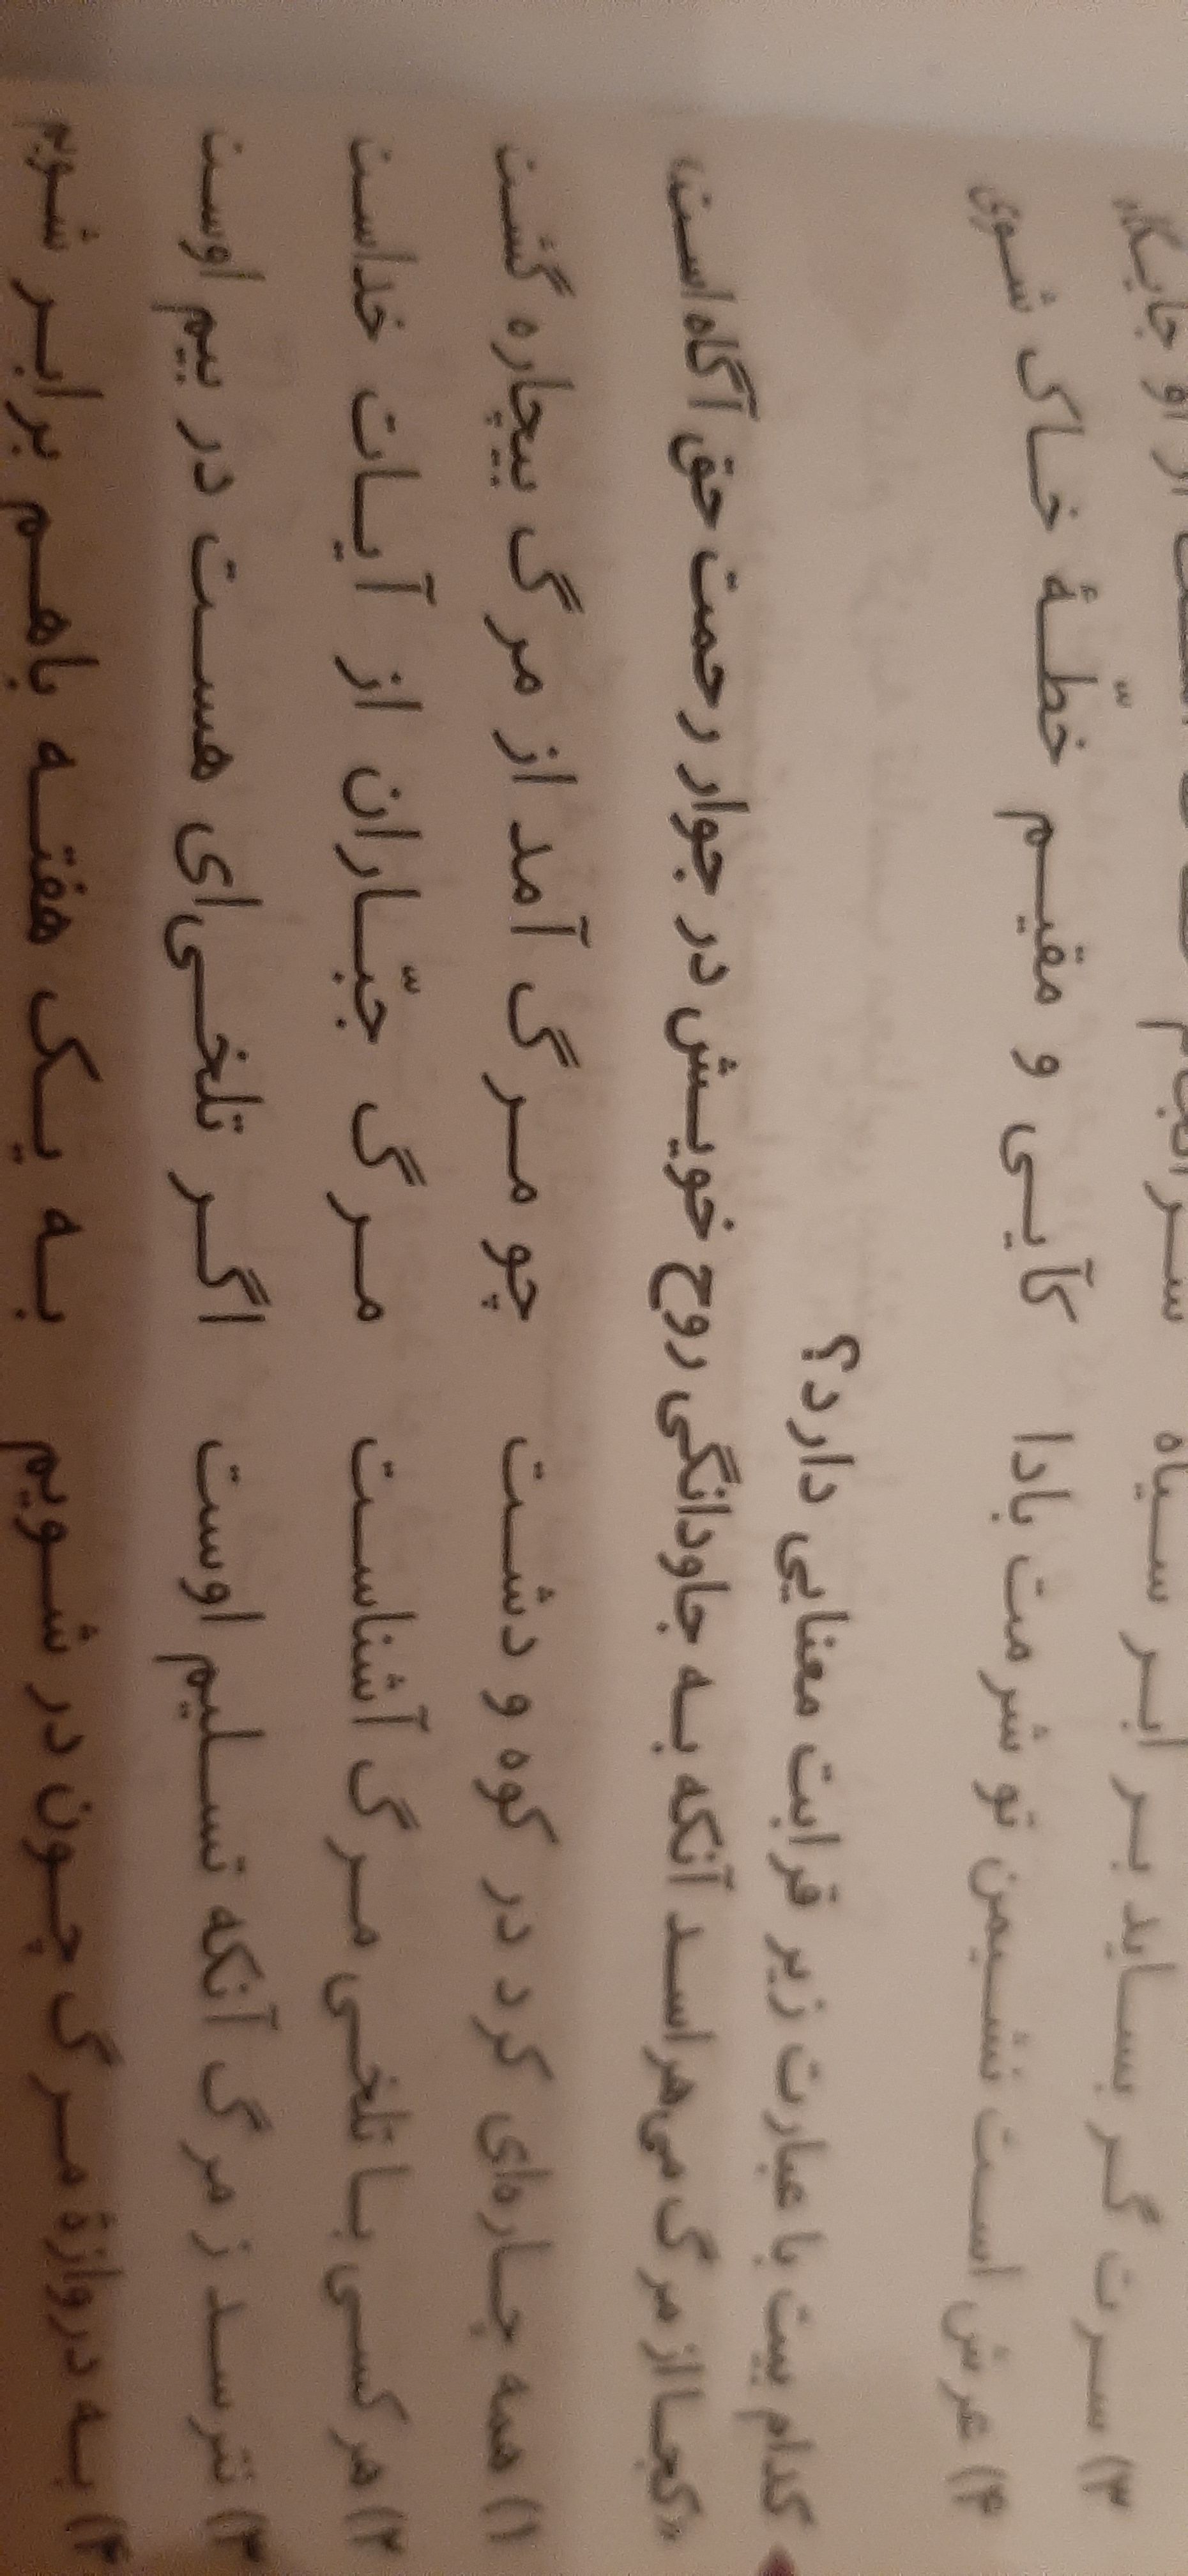 ۳) سرت گر بساید بر ابر سیاه سرانجام از او جایگاه
۴) عرش است نشیمن تو شرمت بادا کآیی و مقیم خطّهٔ خاک شوی
کدام بیت با عبارت زیر قرابت معنایی دارد؟
«کجا از مرگ می‌هراسد آنکه به جاودانگی روح خویش در جوار رحمت حق آگاه است»
۱) همه چاره‌ای کرد در کوه و دشت چو مرگ آمد از مرگ بیچاره گشت
۲) هر کسی با تلخی مرگ آشناست مرگ جبّاران از آیات خداست
۳) نترسد ز مرگ آنکه تسلیم اوست اگر تلخی‌ای هست در بیم اوست
۴) به دروازهٔ مرگ چون در شویم به یک هفته باهم برابر شویم